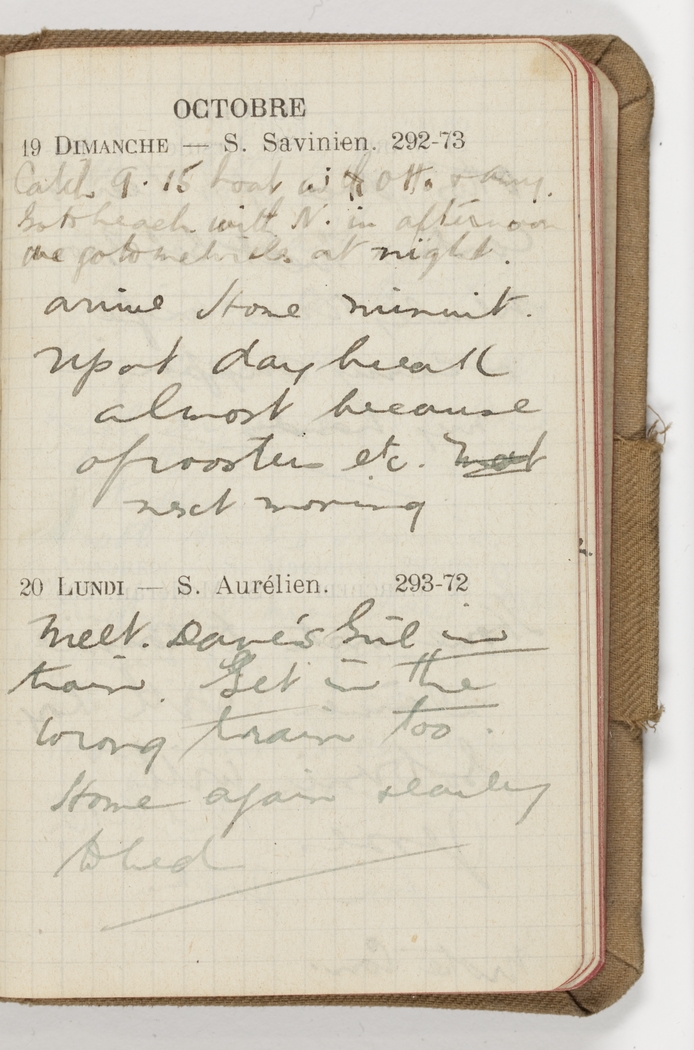 OCTOBRE
19 DIMANCHE — S. Savinien. 292-73
Catch 9.15 boat with Ott. & Amy.
Go to beach with N. in afternoon
we go to at night.
arrive Home minuit.
Up at daybreak
almost because
of roosters etc.
next morning
20 LUNDI — S. Aurélien. 293-72
Meet. Dave's Girl in
train. Get in the
wrong train too.
Home again & early
to bed